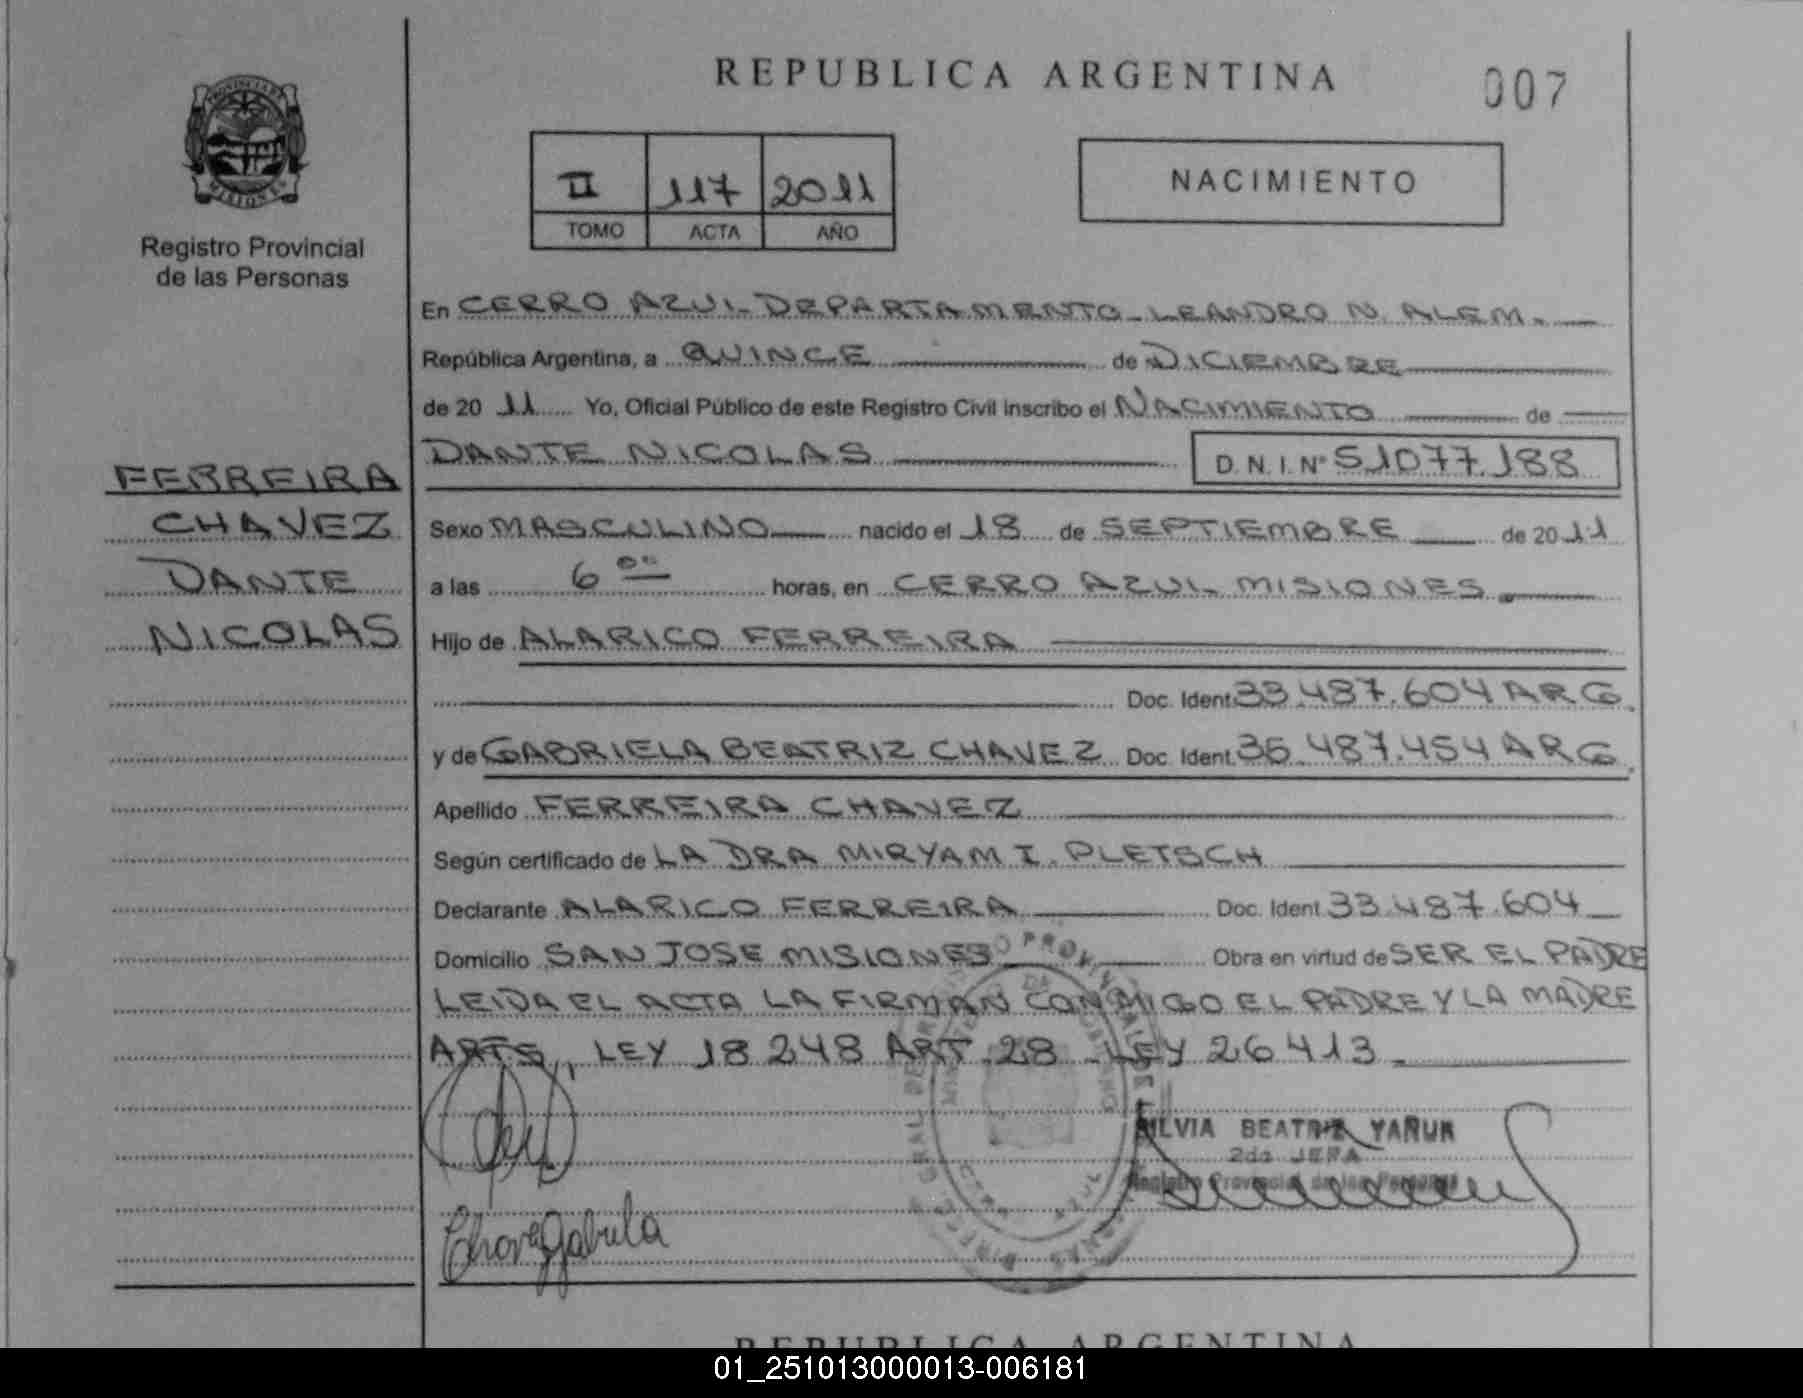 REPUBLICA ARGENTINA
007
PROVINCIA DE
MISIONES
Registro Provincial
de las Personas
II 117 2011
TOMO ACTA AÑO
NACIMIENTO
En CERRO AZUL DEPARTAMENTO LEANDRO N. ALEM.
República Argentina, a QUINCE de DICIEMBRE
de 20 11 Yo, Oficial Público de este Registro Civil inscribo el NACIMIENTO de
DANTE NICOLAS D.N.I.Nº 51077.188
FERREIRA
CHAVEZ
DANTE
NICOLAS
Sexo MASCULINO nacido el 18 de SEPTIEMBRE de 20 11
a las 6 00 horas, en CERRO AZUL MISIONES.
Hijo de ALARICO FERREIRA
Doc. Ident. 33.487.604 ARG.
y de GABRIELA BEATRIZ CHAVEZ Doc. Ident. 36.487.454 ARG.
Apellido FERREIRA CHAVEZ
Según certificado de LA DRA MIRYAM I. PLETSCH
Declarante ALARICO FERREIRA Doc. Ident. 33.487.604
Domicilio SAN JOSE MISIONES Obra en virtud de SER EL PADRE
LEIDA EL ACTA LA FIRMAN CONMIGO EL PADRE Y LA MADRE
ARTS, LEY 18248 ART.28 LEY 26413
SILVIA BEATRIZ YAÑUK
2da JEFA
Registro Provincial de las Personas
REPUBLICA ARGENTINA
01_251013000013-006181